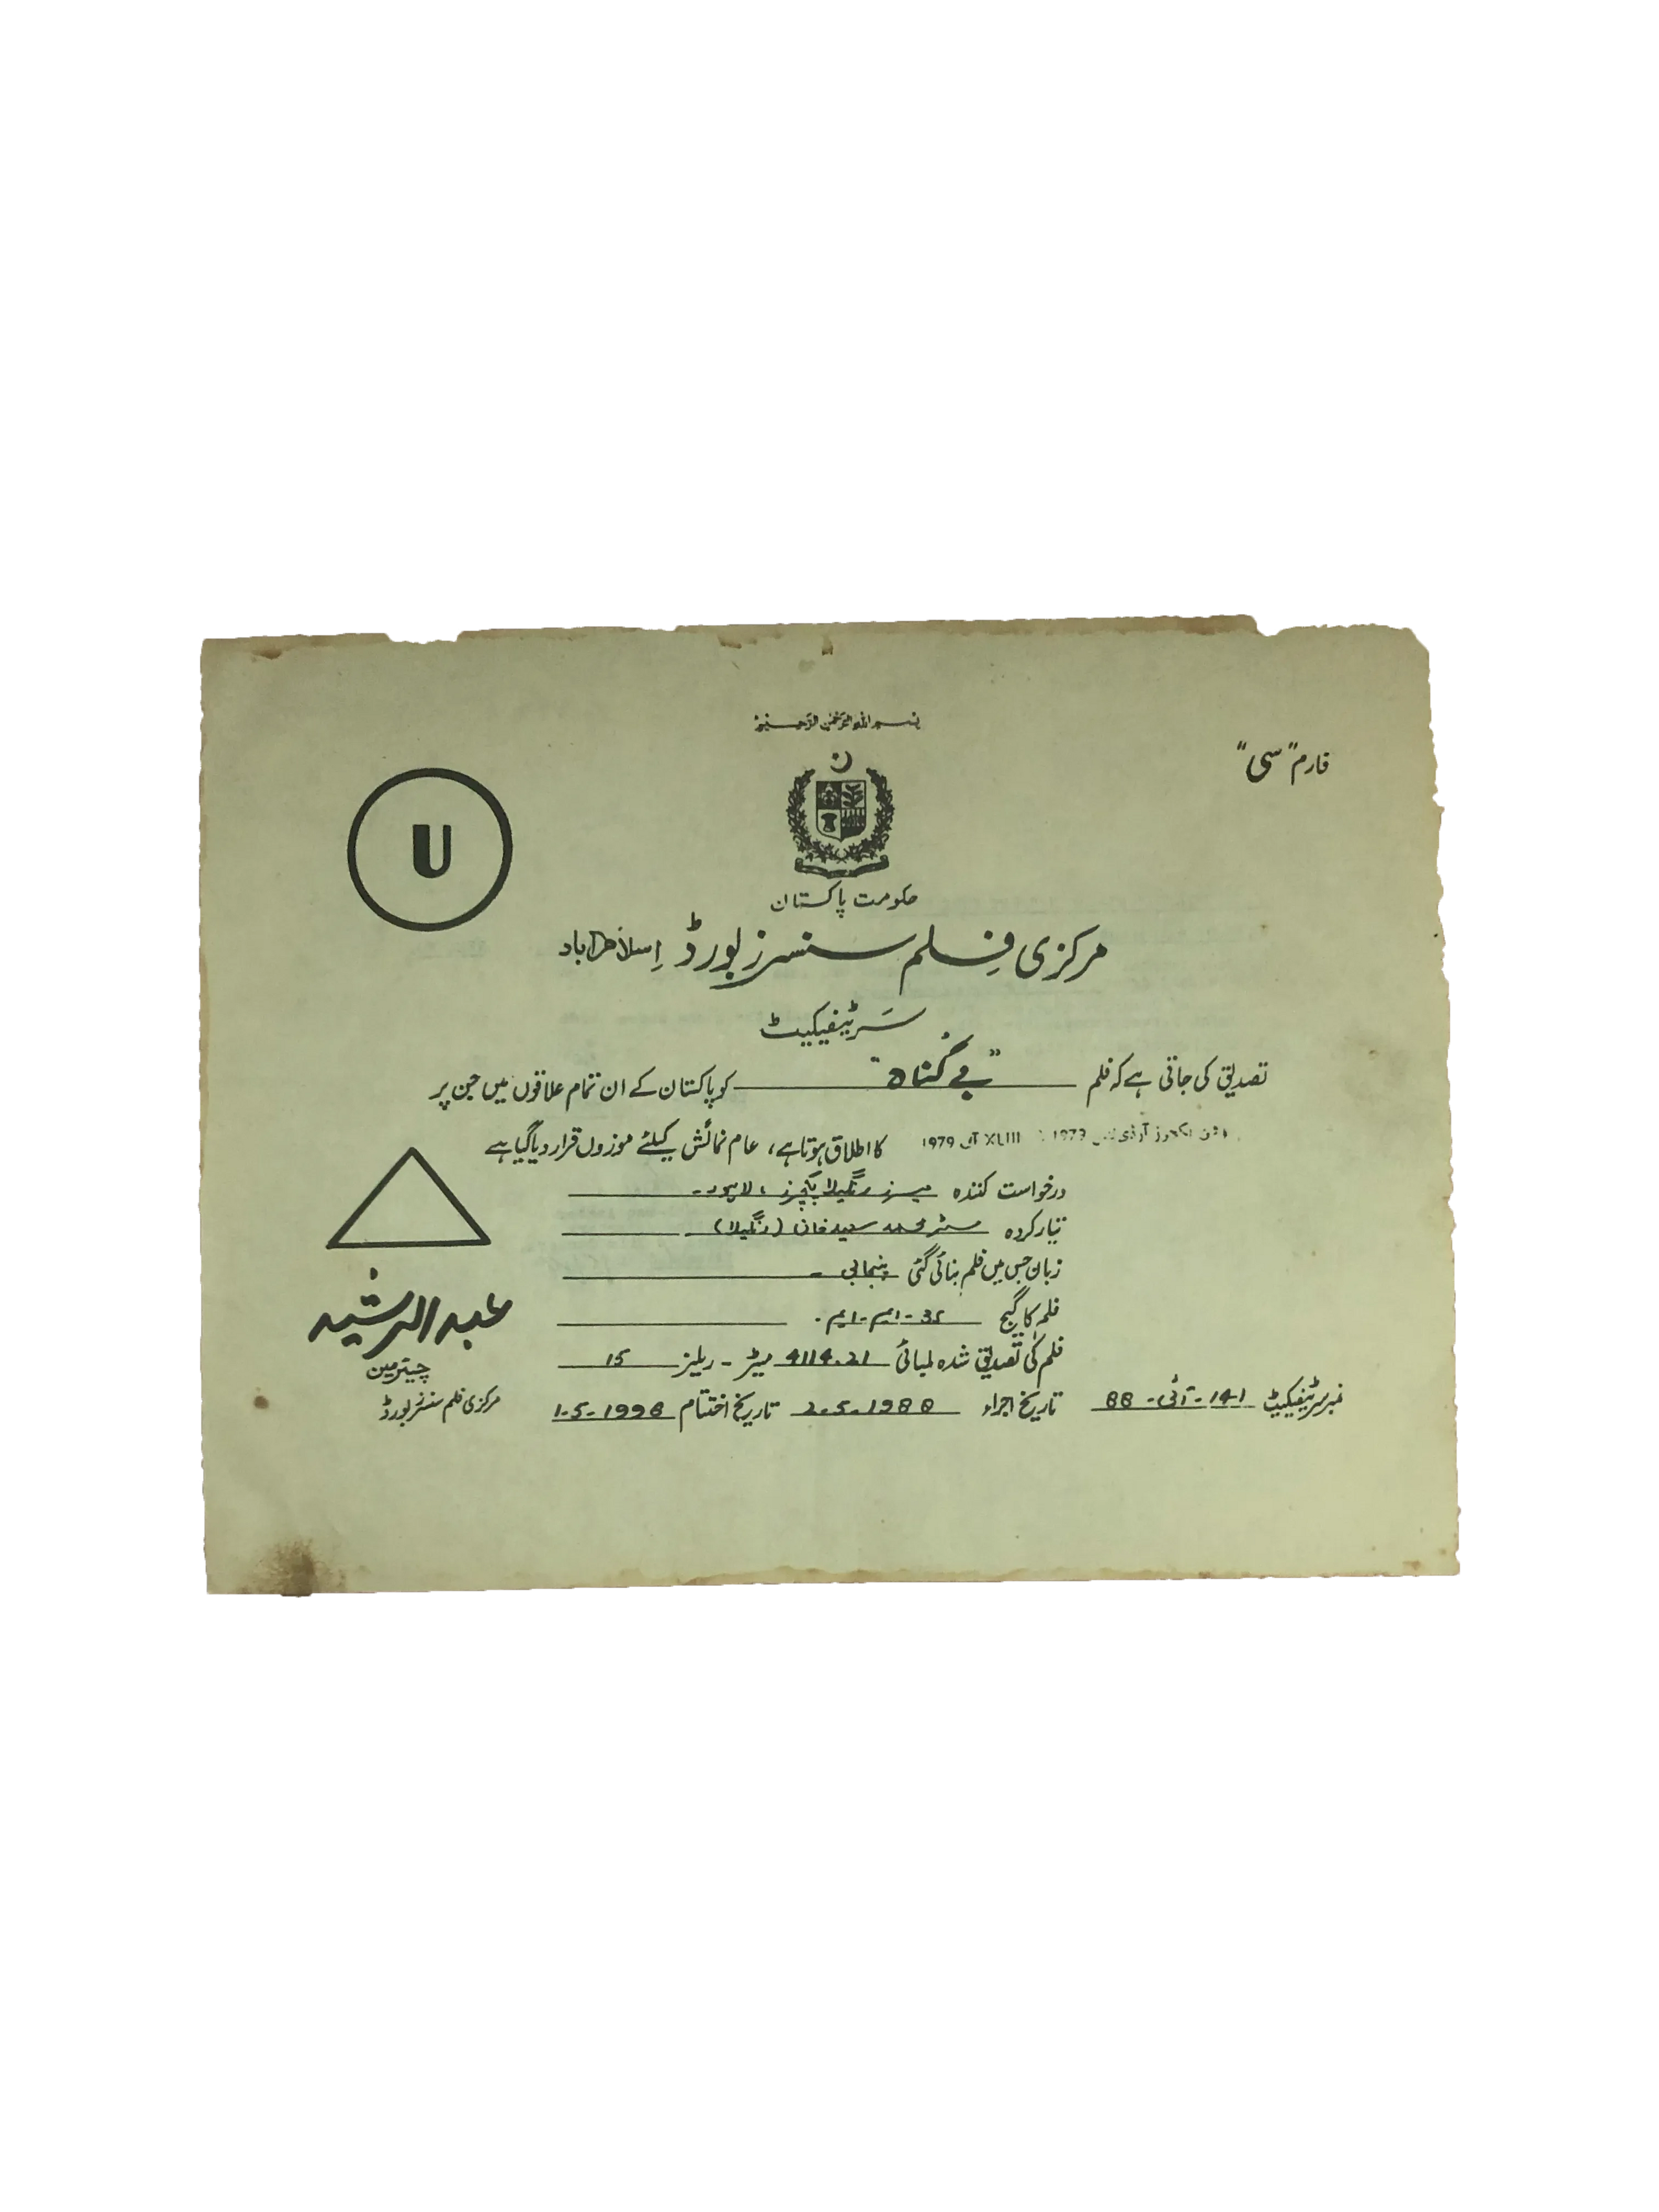 بسم اللہ الرحمٰن الرحیم
فارم "سی"
U
حکومت پاکستان
مرکزی فلم سنسرز بورڈ اسلام آباد
سرٹیفیکیٹ
تصدیق کی جاتی ہے کہ فلم "بے گناہ" کو پاکستان کے ان تمام علاقوں میں جن پر
XLIII آف 1979 کا اطلاق ہوتا ہے، عام نمائش کیلئے موزوں قرار دیا گیا ہے
درخواست کنندہ میسرز رنگیلا پکچرز، لاہور-
تیار کردہ مسٹر محمد سعید خان (رنگیلا)-
زبان جس میں فلم بنائی گئی پنجابی-
فلم کا گیج 35-ایم-ایم.
فلم کی تصدیق شدہ لمبائی 4114.21 میٹر- ریلیز 15
نمبر سرٹیفیکیٹ 141-آئی-88 تاریخ اجراء 2.5.1988 تاریخ اختتام 1-5-1998
عبدالرشید
چیئرمین
مرکزی فلم سنسرز بورڈ